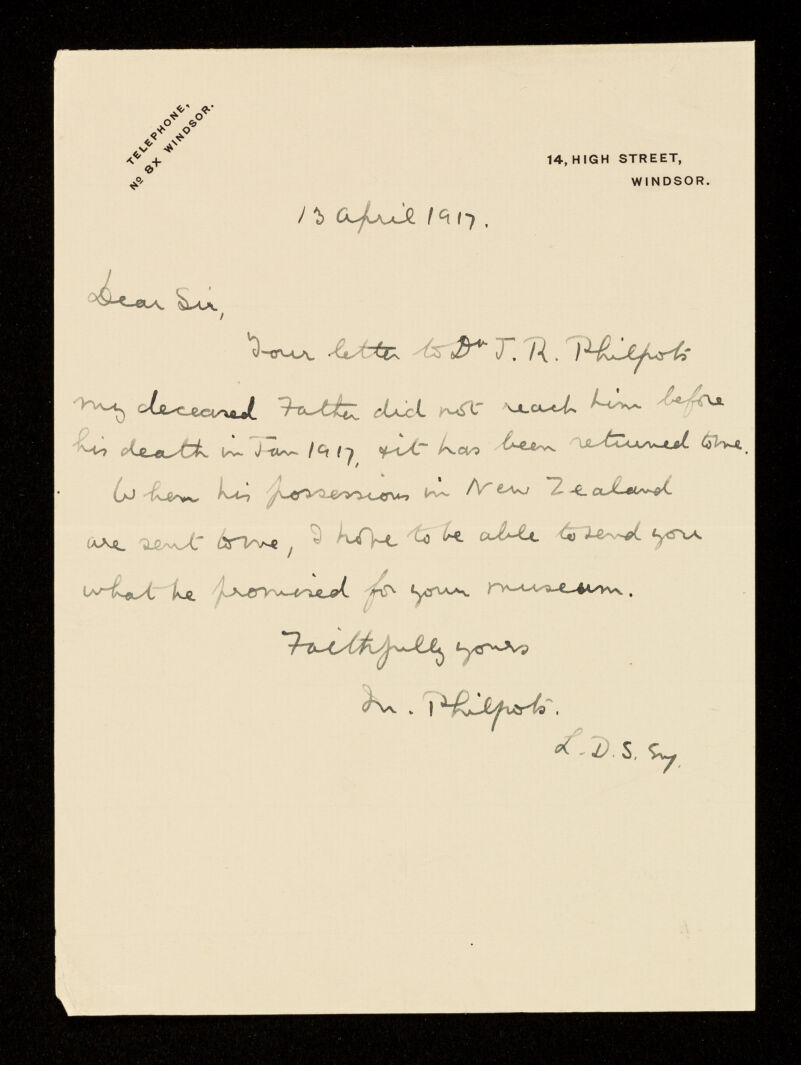 TELEPHONE,
Nº 8X WINDSOR.
14, HIGH STREET,
WINDSOR.
13 April 1917.
Dear Sir,
Your letter to Dr J. R. Philpots
my deceased Father did not reach him before
his death in Jan 1917, & it has been returned to me.
When his possessions in New Zealand
are sent to me, I hope to be able to send you
what he promised for your museum.
Faithfully yours
Philpots.
L.D.S. Eng.